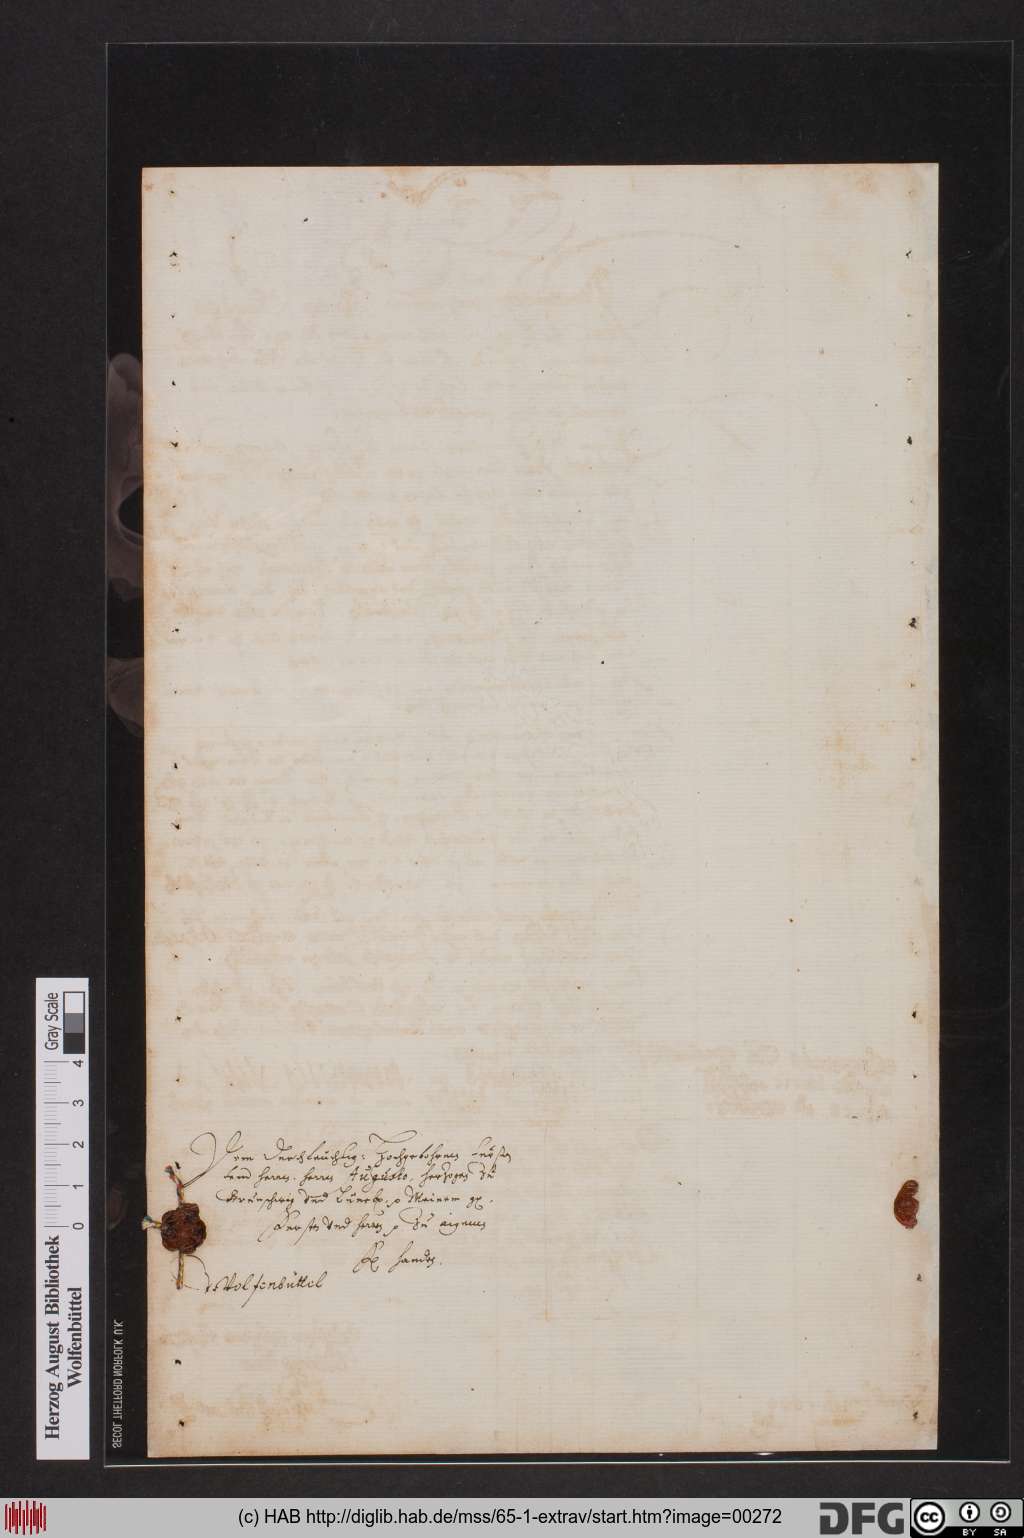 Dem Durchleuchtig: Hochgebohrnen Fürsten
vnnd herrn. herrn Augusto, herzogen Zu
Brunschwig vnd Lüneb. p Meinem g.
Fürsten vnd herrn p Zu aigenen
handen.
Wolfenbüttel
Herzog August Bibliothek
Wolfenbüttel
0 1 2 3 4
Gray Scale
SECOL THETFORD NORFOLK U.K.
(c) HAB http://diglib.hab.de/mss/65-1-extrav/start.htm?image=00272
DFG
cc BY SA